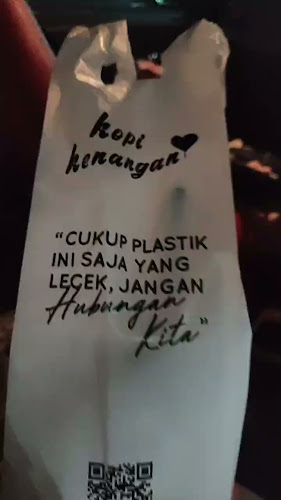 kopi
kenangan
"CUKUP PLASTIK
INI SAJA YANG
LECEK, JANGAN
Hubungan
Kita"